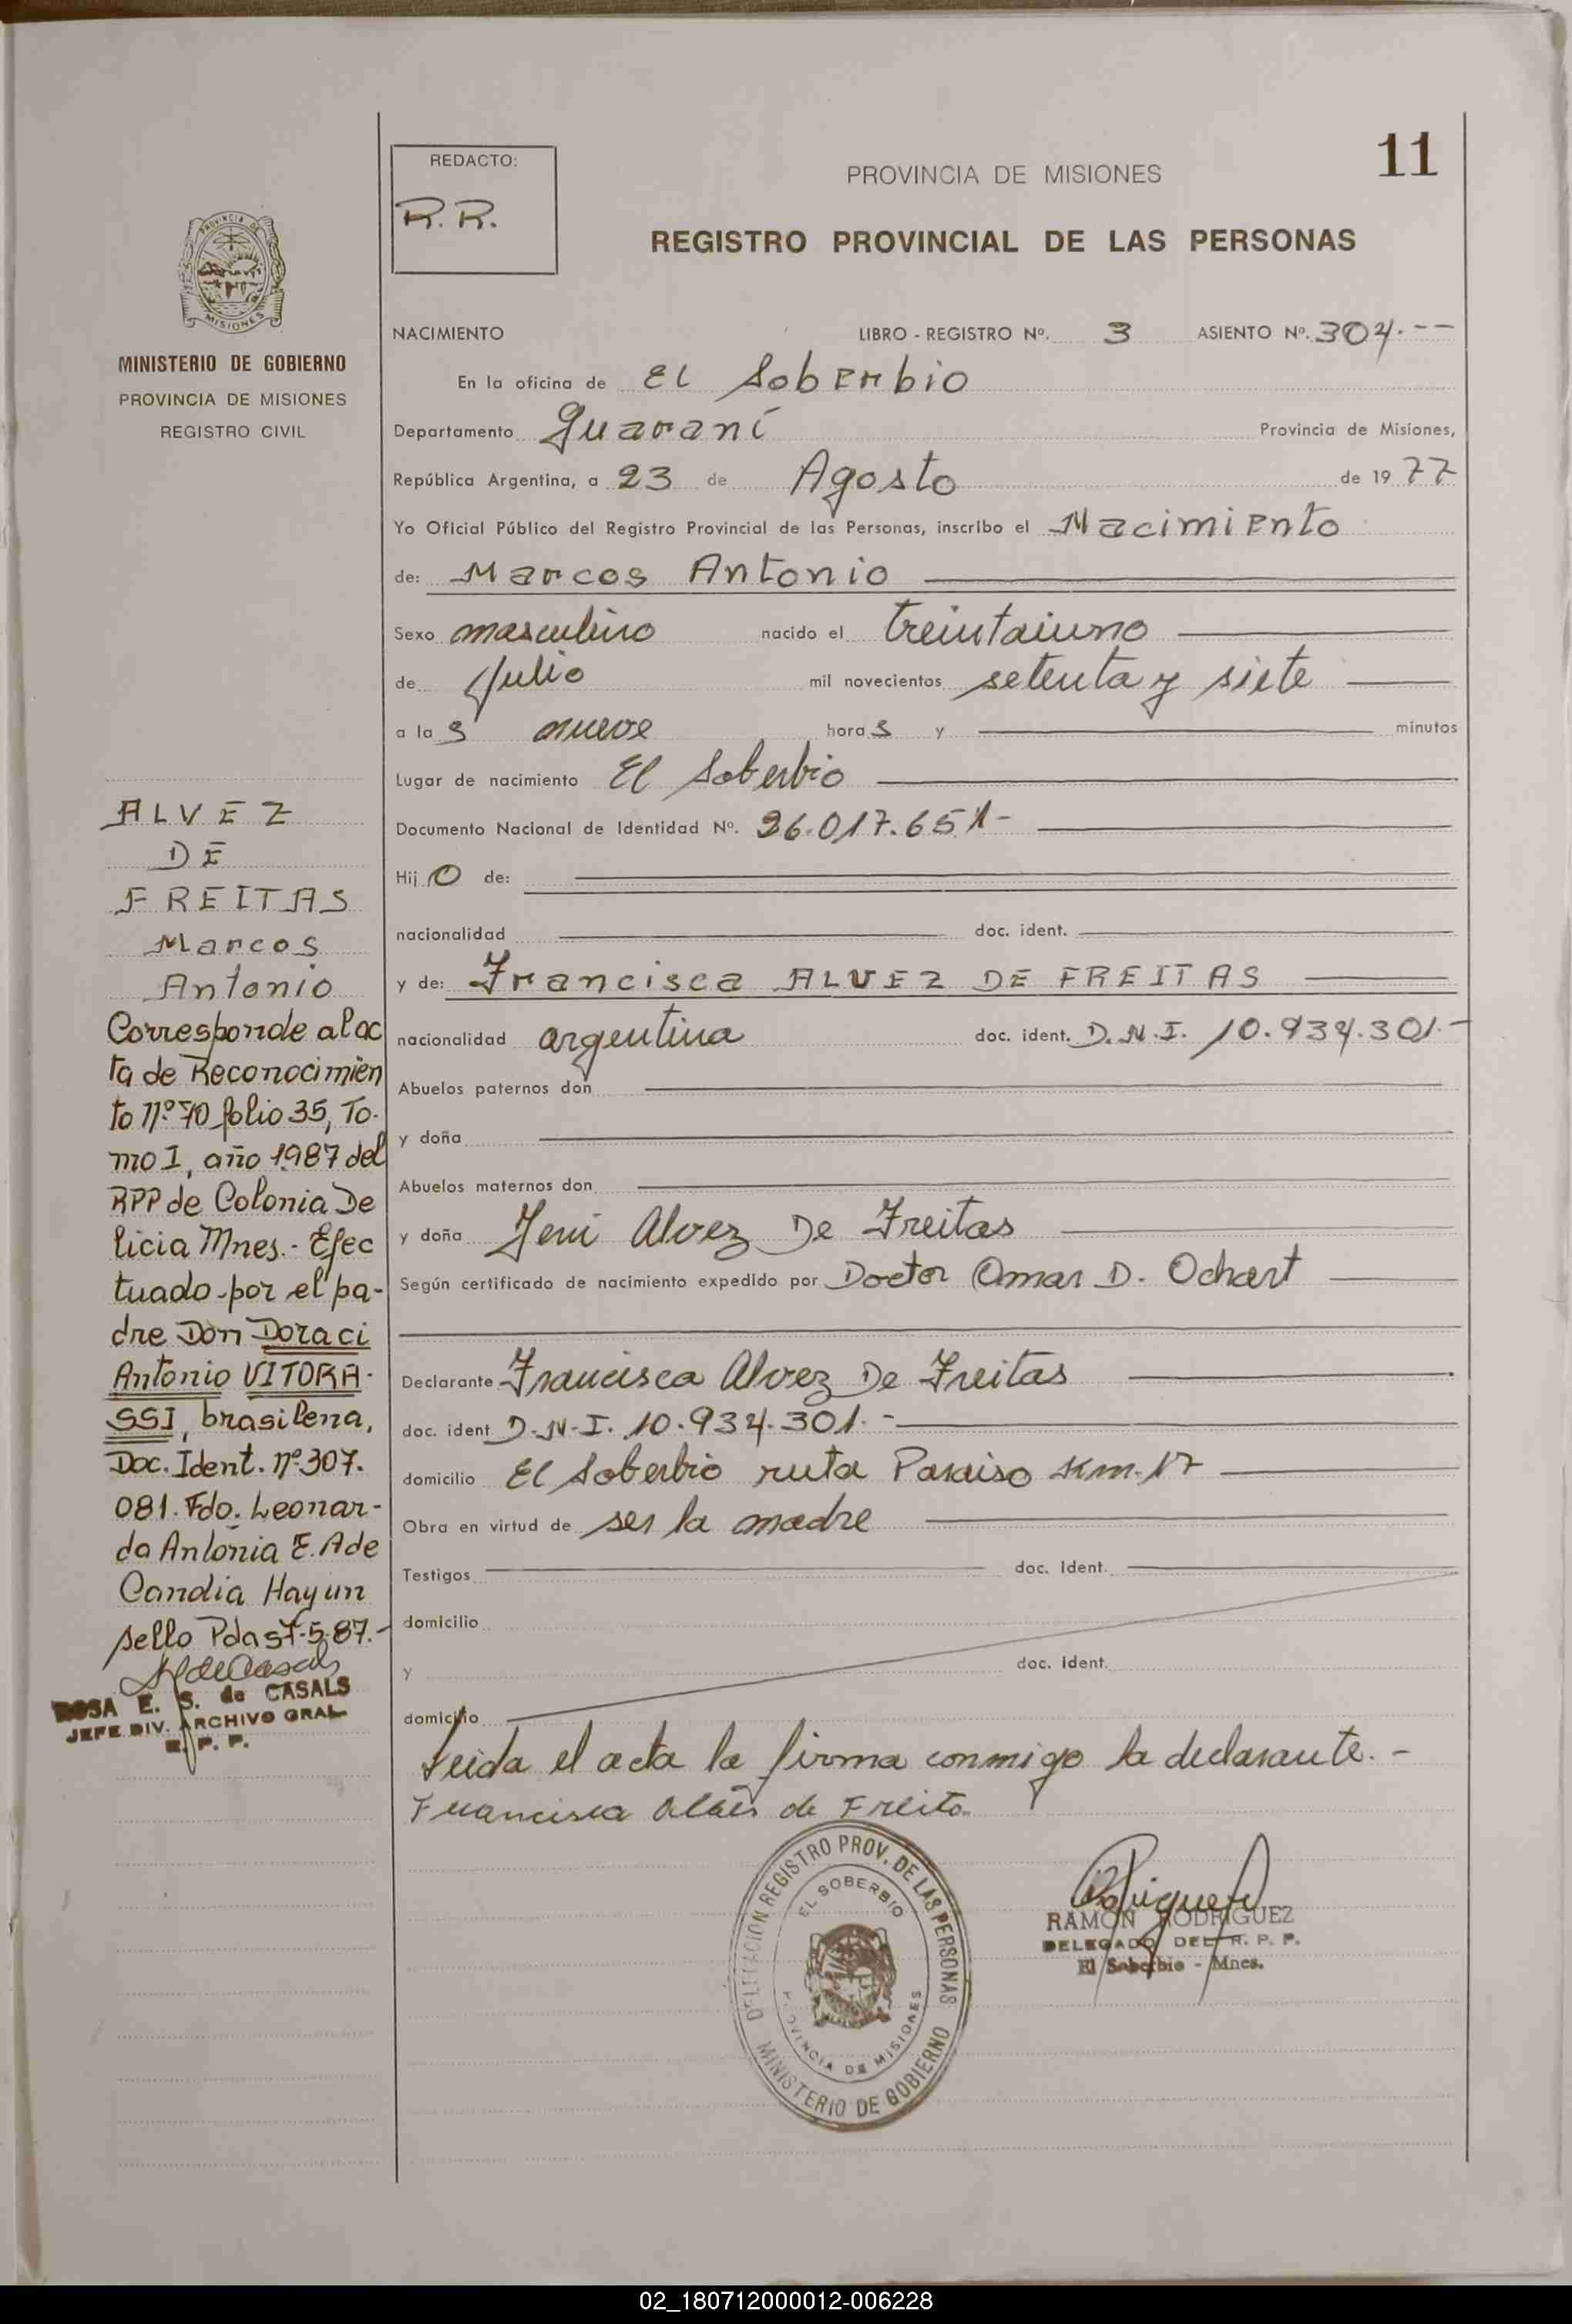 11
REDACTO:
R.R.
PROVINCIA DE MISIONES
REGISTRO PROVINCIAL DE LAS PERSONAS
PROVINCIA DE
MISIONES
MINISTERIO DE GOBIERNO
PROVINCIA DE MISIONES
REGISTRO CIVIL
NACIMIENTO LIBRO - REGISTRO Nº. 3 ASIENTO Nº. 304.--
En la oficina de El Soberbio
Departamento Guaraní Provincia de Misiones,
República Argentina, a 23 de Agosto de 19 77
Yo Oficial Público del Registro Provincial de las Personas, inscribo el Nacimiento
de: Marcos Antonio
Sexo masculino nacido el treintaiuno
de Julio mil novecientos setenta y siete
a la s nueve hora s y minutos
Lugar de nacimiento El Soberbio
Documento Nacional de Identidad Nº. 26.017.651-
Hij o de:
nacionalidad doc. ident.
y de: Francisca ALVEZ DE FREITAS
nacionalidad argentina doc. ident. D.N.I. 10.934.301.-
Abuelos paternos don
y doña
Abuelos maternos don
y doña Jeni Alvez De Freitas
Según certificado de nacimiento expedido por Doctor Omar D. Ochart
Declarante Francisca Alvez De Freitas
doc. ident D.N.I. 10.934.301.-
domicilio El Soberbio ruta Paraiso Km. 17
Obra en virtud de ser la madre
Testigos doc. ident.
domicilio
y doc. ident.
domicilio
Leida el acta la firma conmigo la declarante.-
Francisca de Freita
ALVEZ
DE
FREITAS
Marcos
Antonio
Corresponde al ac
ta de Reconocimien
to nº 70 folio 35, To-
mo I, año 1987 del
RPP de Colonia De
licia Mnes.- Efec
tuado por el pa-
dre Don Doraci
Antonio VITORA-
SSI, brasilena,
Doc. Ident. nº 307.
081. Fdo. Leonar-
da Antonia E. A de
Candia Hay un
sello Pdas 7-5-87.-
ROSA E. S. de CASALS
JEFE DIV. ARCHIVO GRAL
R. P. P.
DELEGACION REGISTRO PROV. DE LAS PERSONAS
EL SOBERBIO
PROVINCIA DE MISIONES
MINISTERIO DE GOBIERNO
RAMON RODRIGUEZ
DELEGADO DEL R. P. P.
El Soberbio - Mnes.
02_180712000012-006228